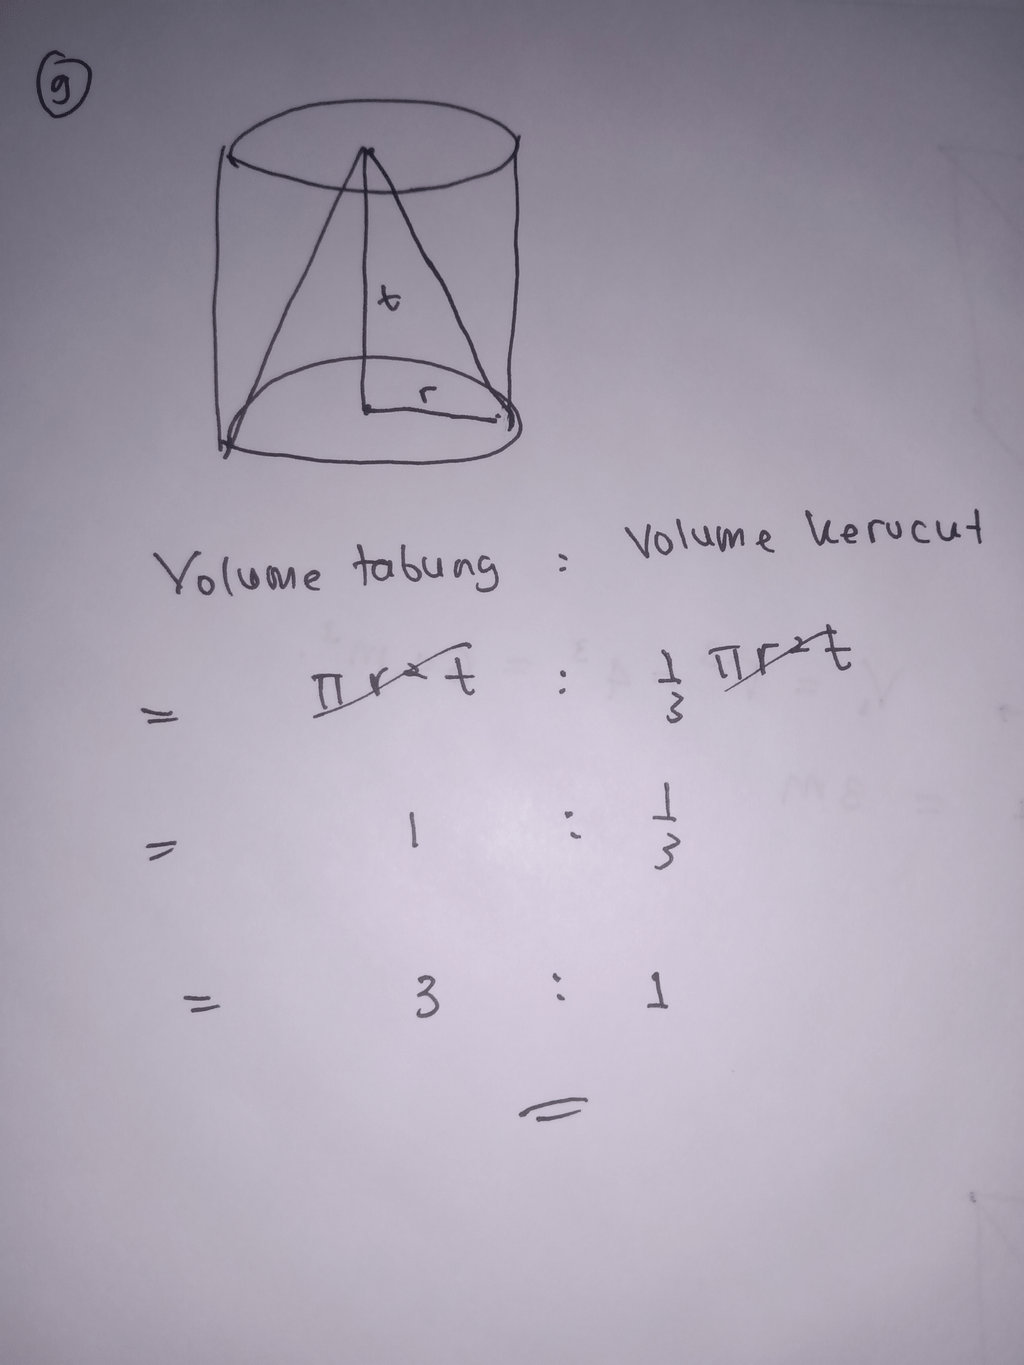 9
t
r
Volume tabung : Volume kerucut
= πr²t : 1/3 πr²t
= 1 : 1/3
= 3 : 1